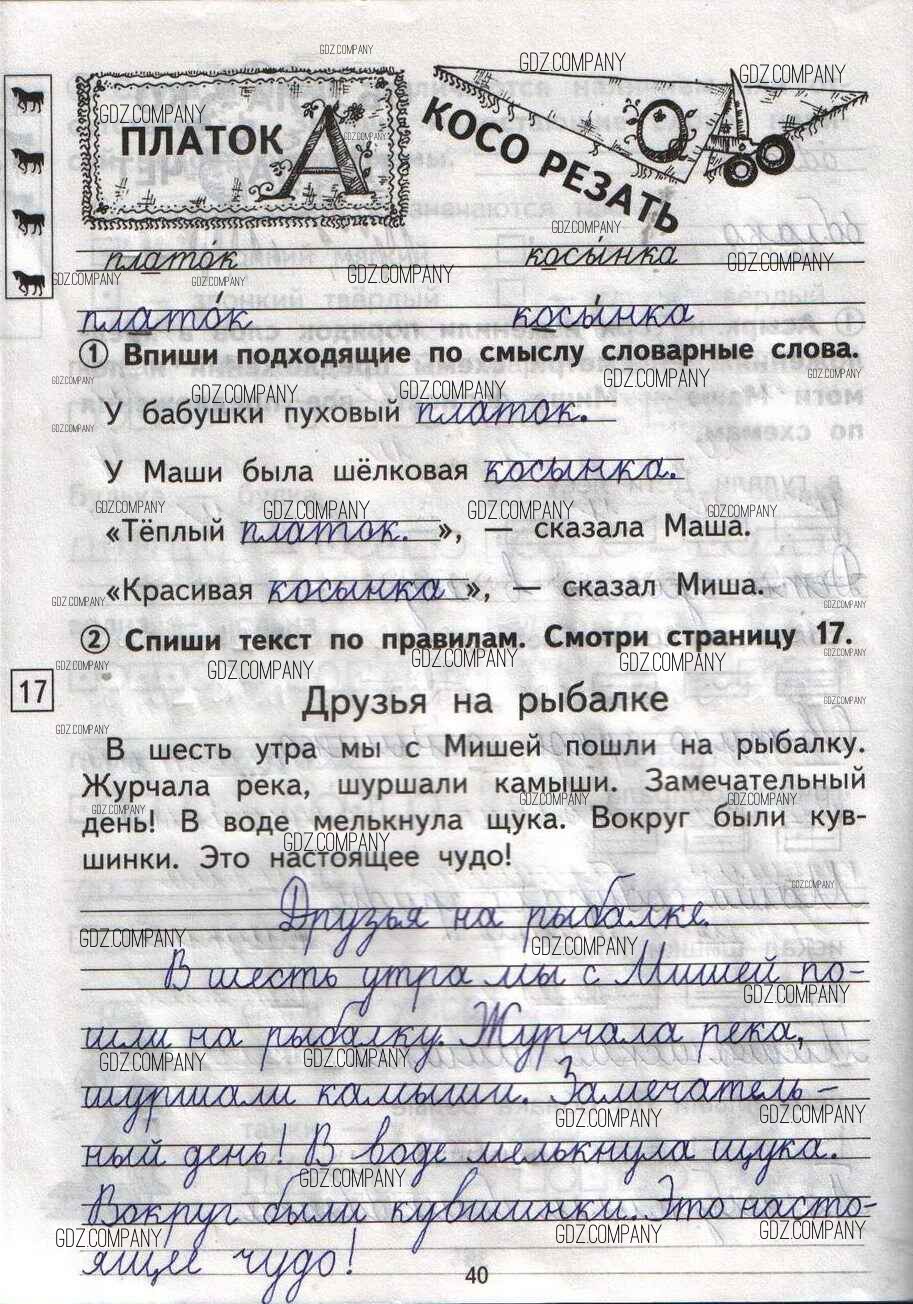 ПЛАТОК А
КОСО РЕЗАТЬ
О
плато́к косы́нка
плато́к косы́нка
① Впиши подходящие по смыслу словарные слова.
У бабушки пуховый платок.
У Маши была шёлковая косынка.
«Тёплый платок.», — сказала Маша.
«Красивая косынка», — сказал Миша.
② Спиши текст по правилам. Смотри страницу 17.
17
Друзья на рыбалке
В шесть утра мы с Мишей пошли на рыбалку.
Журчала река, шуршали камыши. Замечательный
день! В воде мелькнула щука. Вокруг были кув-
шинки. Это настоящее чудо!
Друзья на рыбалке.
В шесть утра мы с Мишей по-
шли на рыбалку. Журчала река,
шуршали камыши. Замечатель-
ный день! В воде мелькнула щука.
Вокруг были кувшинки. Это насто-
ящее чудо!
40
GDZ.COMPANY